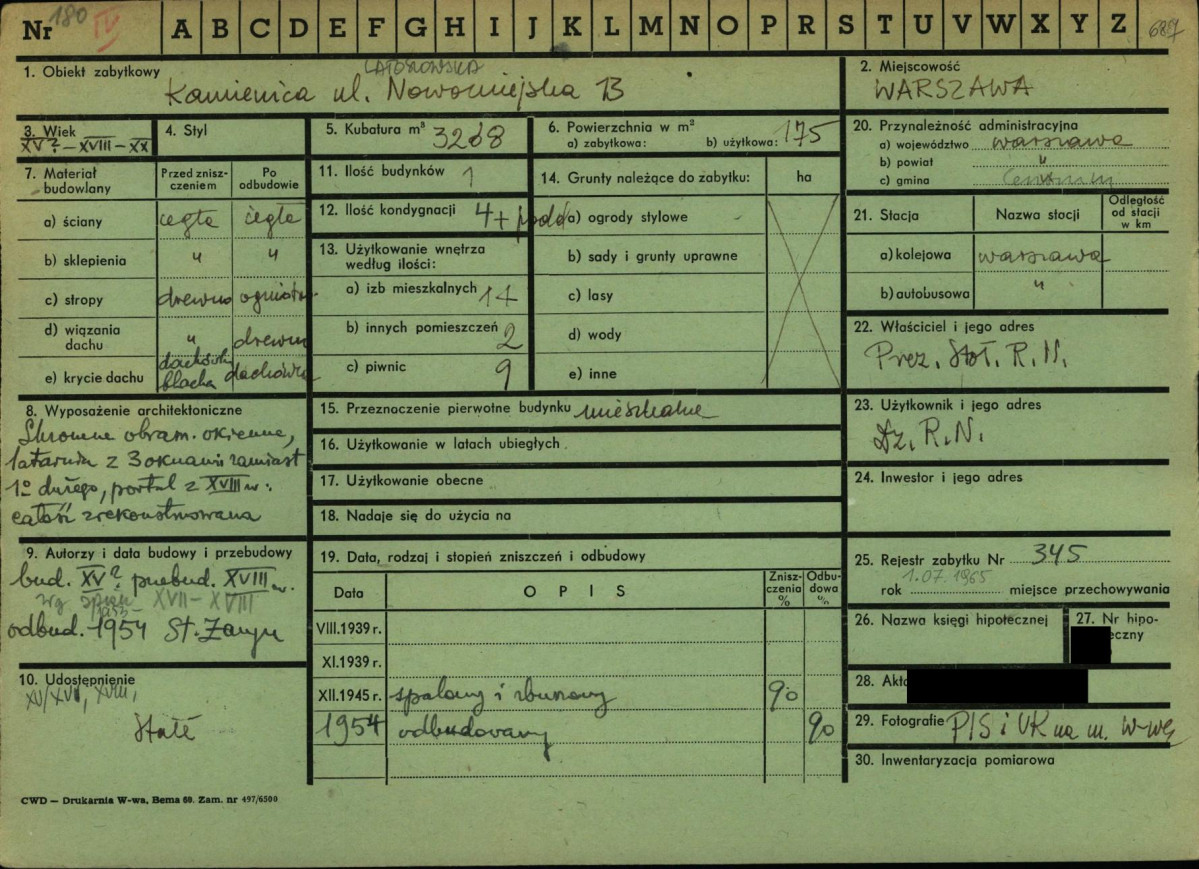 Nr 180 IV A B C D E F G H I J K L M N O P R S T U V W X Y Z 687
1. Obiekt zabytkowy
ŁATOSZOWSKA
Kamienica ul. Nowomiejska 13
2. Miejscowość
WARSZAWA
3. Wiek
XV? – XVIII – XX
4. Styl
5. Kubatura m³ 3268
6. Powierzchnia w m²
a) zabytkowa: b) użytkowa: 175
7. Materiał budowlany
Przed zniszczeniem
Po odbudowie
a) ściany cegła cegła
b) sklepienia " "
c) stropy drewno ogniotrw.
d) wiązania dachu " drewn
e) krycie dachu dachówk blacha dachówka
8. Wyposażenie architektoniczne
Skromne obram. okienne,
latarnia z 3 oknami zamiast
1º dużego, portal z XVIII w.
całość zrekonstruowana
9. Autorzy i data budowy i przebudowy
bud. XV? przebud. XVIII w.
wg XVII – XVIII
odbud. 1953– 1954 St. Żaryn
10. Udostępnienie
XV/XVII, XVIII,
Stałe
11. Ilość budynków 1
12. Ilość kondygnacji 4 + podd
13. Użytkowanie wnętrza
według ilości:
a) izb mieszkalnych 14
b) innych pomieszczeń 2
c) piwnic 9
14. Grunty należące do zabytku: ha
a) ogrody stylowe -
b) sady i grunty uprawne
c) lasy
d) wody
e) inne
15. Przeznaczenie pierwotne budynku mieszkalne
16. Użytkowanie w latach ubiegłych
17. Użytkowanie obecne
18. Nadaje się do użycia na
19. Data, rodzaj i stopień zniszczeń i odbudowy
Data OPIS Zniszczenia % Odbudowa %
VIII.1939 r.
XI.1939 r.
XII.1945 r. spalony i zburzony 90
1954 odbudowany 90
20. Przynależność administracyjna
a) województwo warszawa
b) powiat "
c) gmina
21. Stacja Nazwa stacji Odległość od stacji w km
a) kolejowa warszawa
b) autobusowa "
22. Właściciel i jego adres
Prez. Stoł. R. N.
23. Użytkownik i jego adres
Dz. R. N.
24. Inwestor i jego adres
25. Rejestr zabytku Nr 345
rok 1.07.1965 miejsce przechowywania
26. Nazwa księgi hipotecznej
27. Nr hipo-
eczny
28. Akta
29. Fotografie PIS i UK na m. W-wę
30. Inwentaryzacja pomiarowa
CWD — Drukarnia W-wa, Bema 60. Zam. nr 497/6500